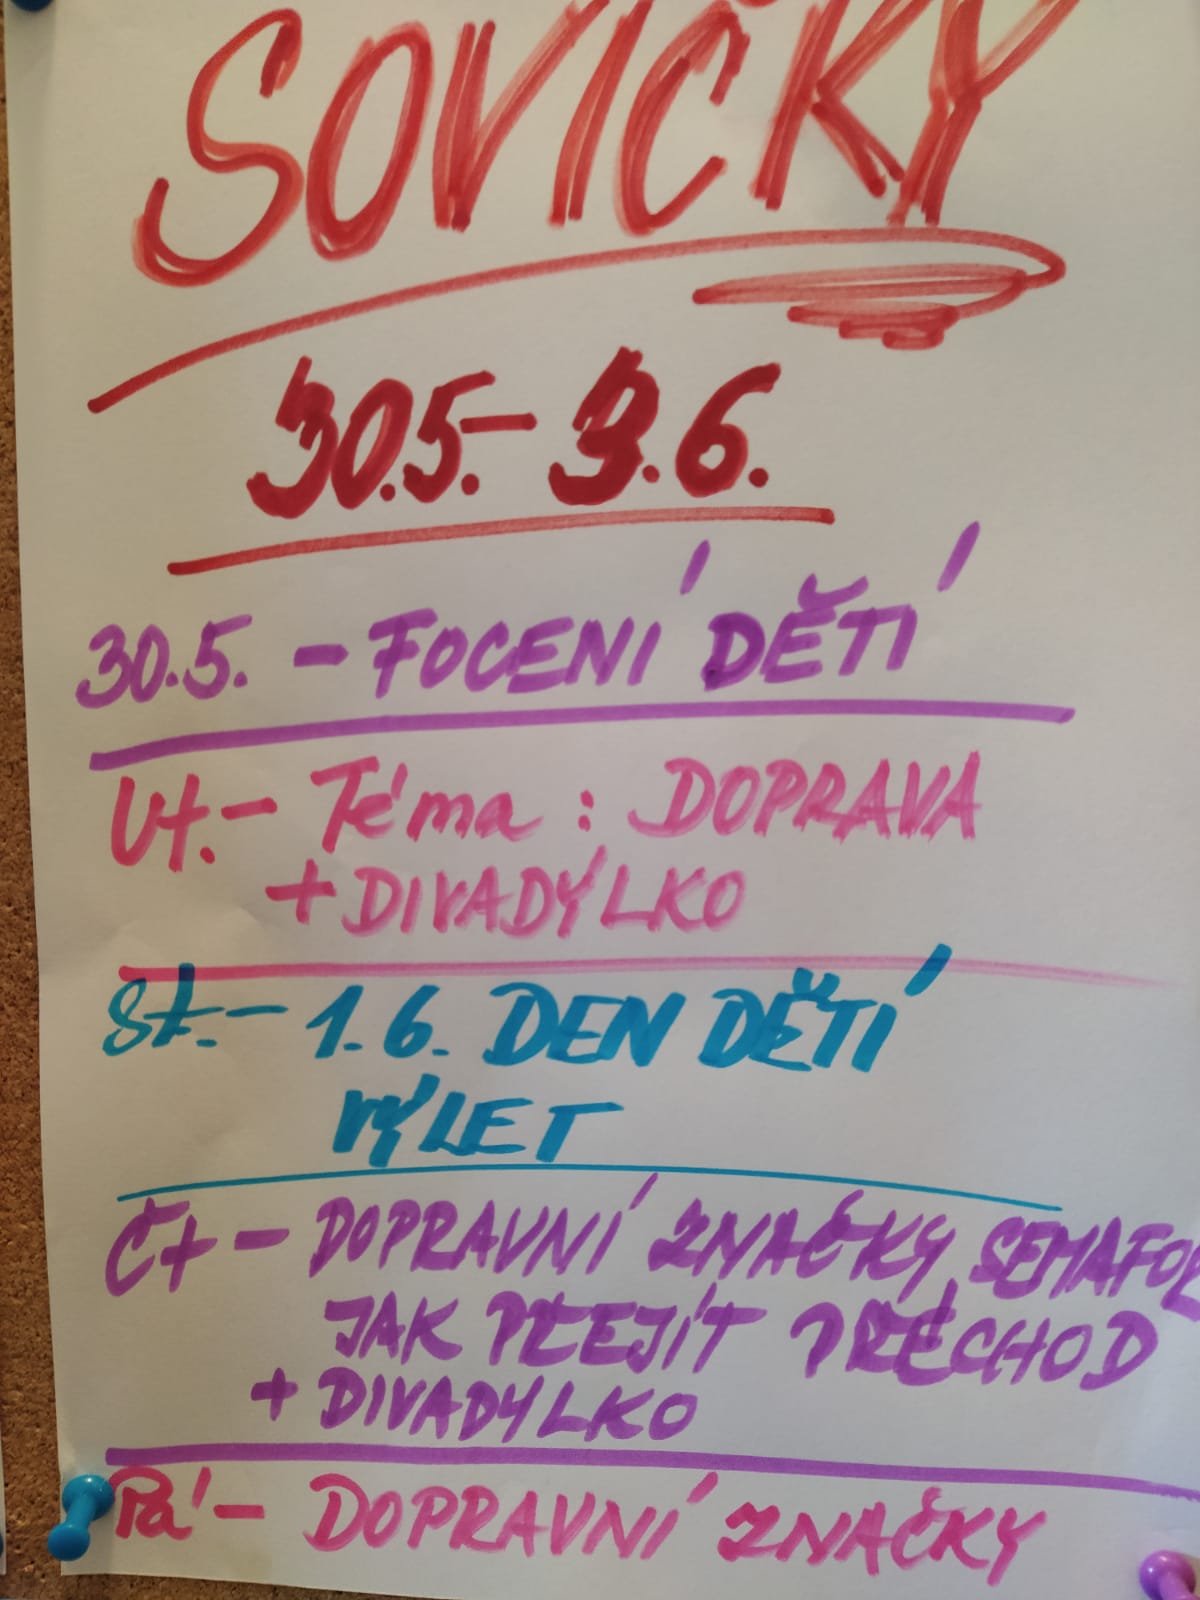 SOVIČKY
30.5.- 3.6.
30.5. - FOCENÍ DĚTÍ
Út. - Téma : DOPRAVA
+ DIVADÝLKO
St. - 1.6. DEN DĚTÍ
VÝLET
Čt - DOPRAVNÍ ZNAČKY, SEMAFOR
JAK PŘEJÍT PŘECHOD
+ DIVADYLKO
Pá - DOPRAVNÍ ZNAČKY